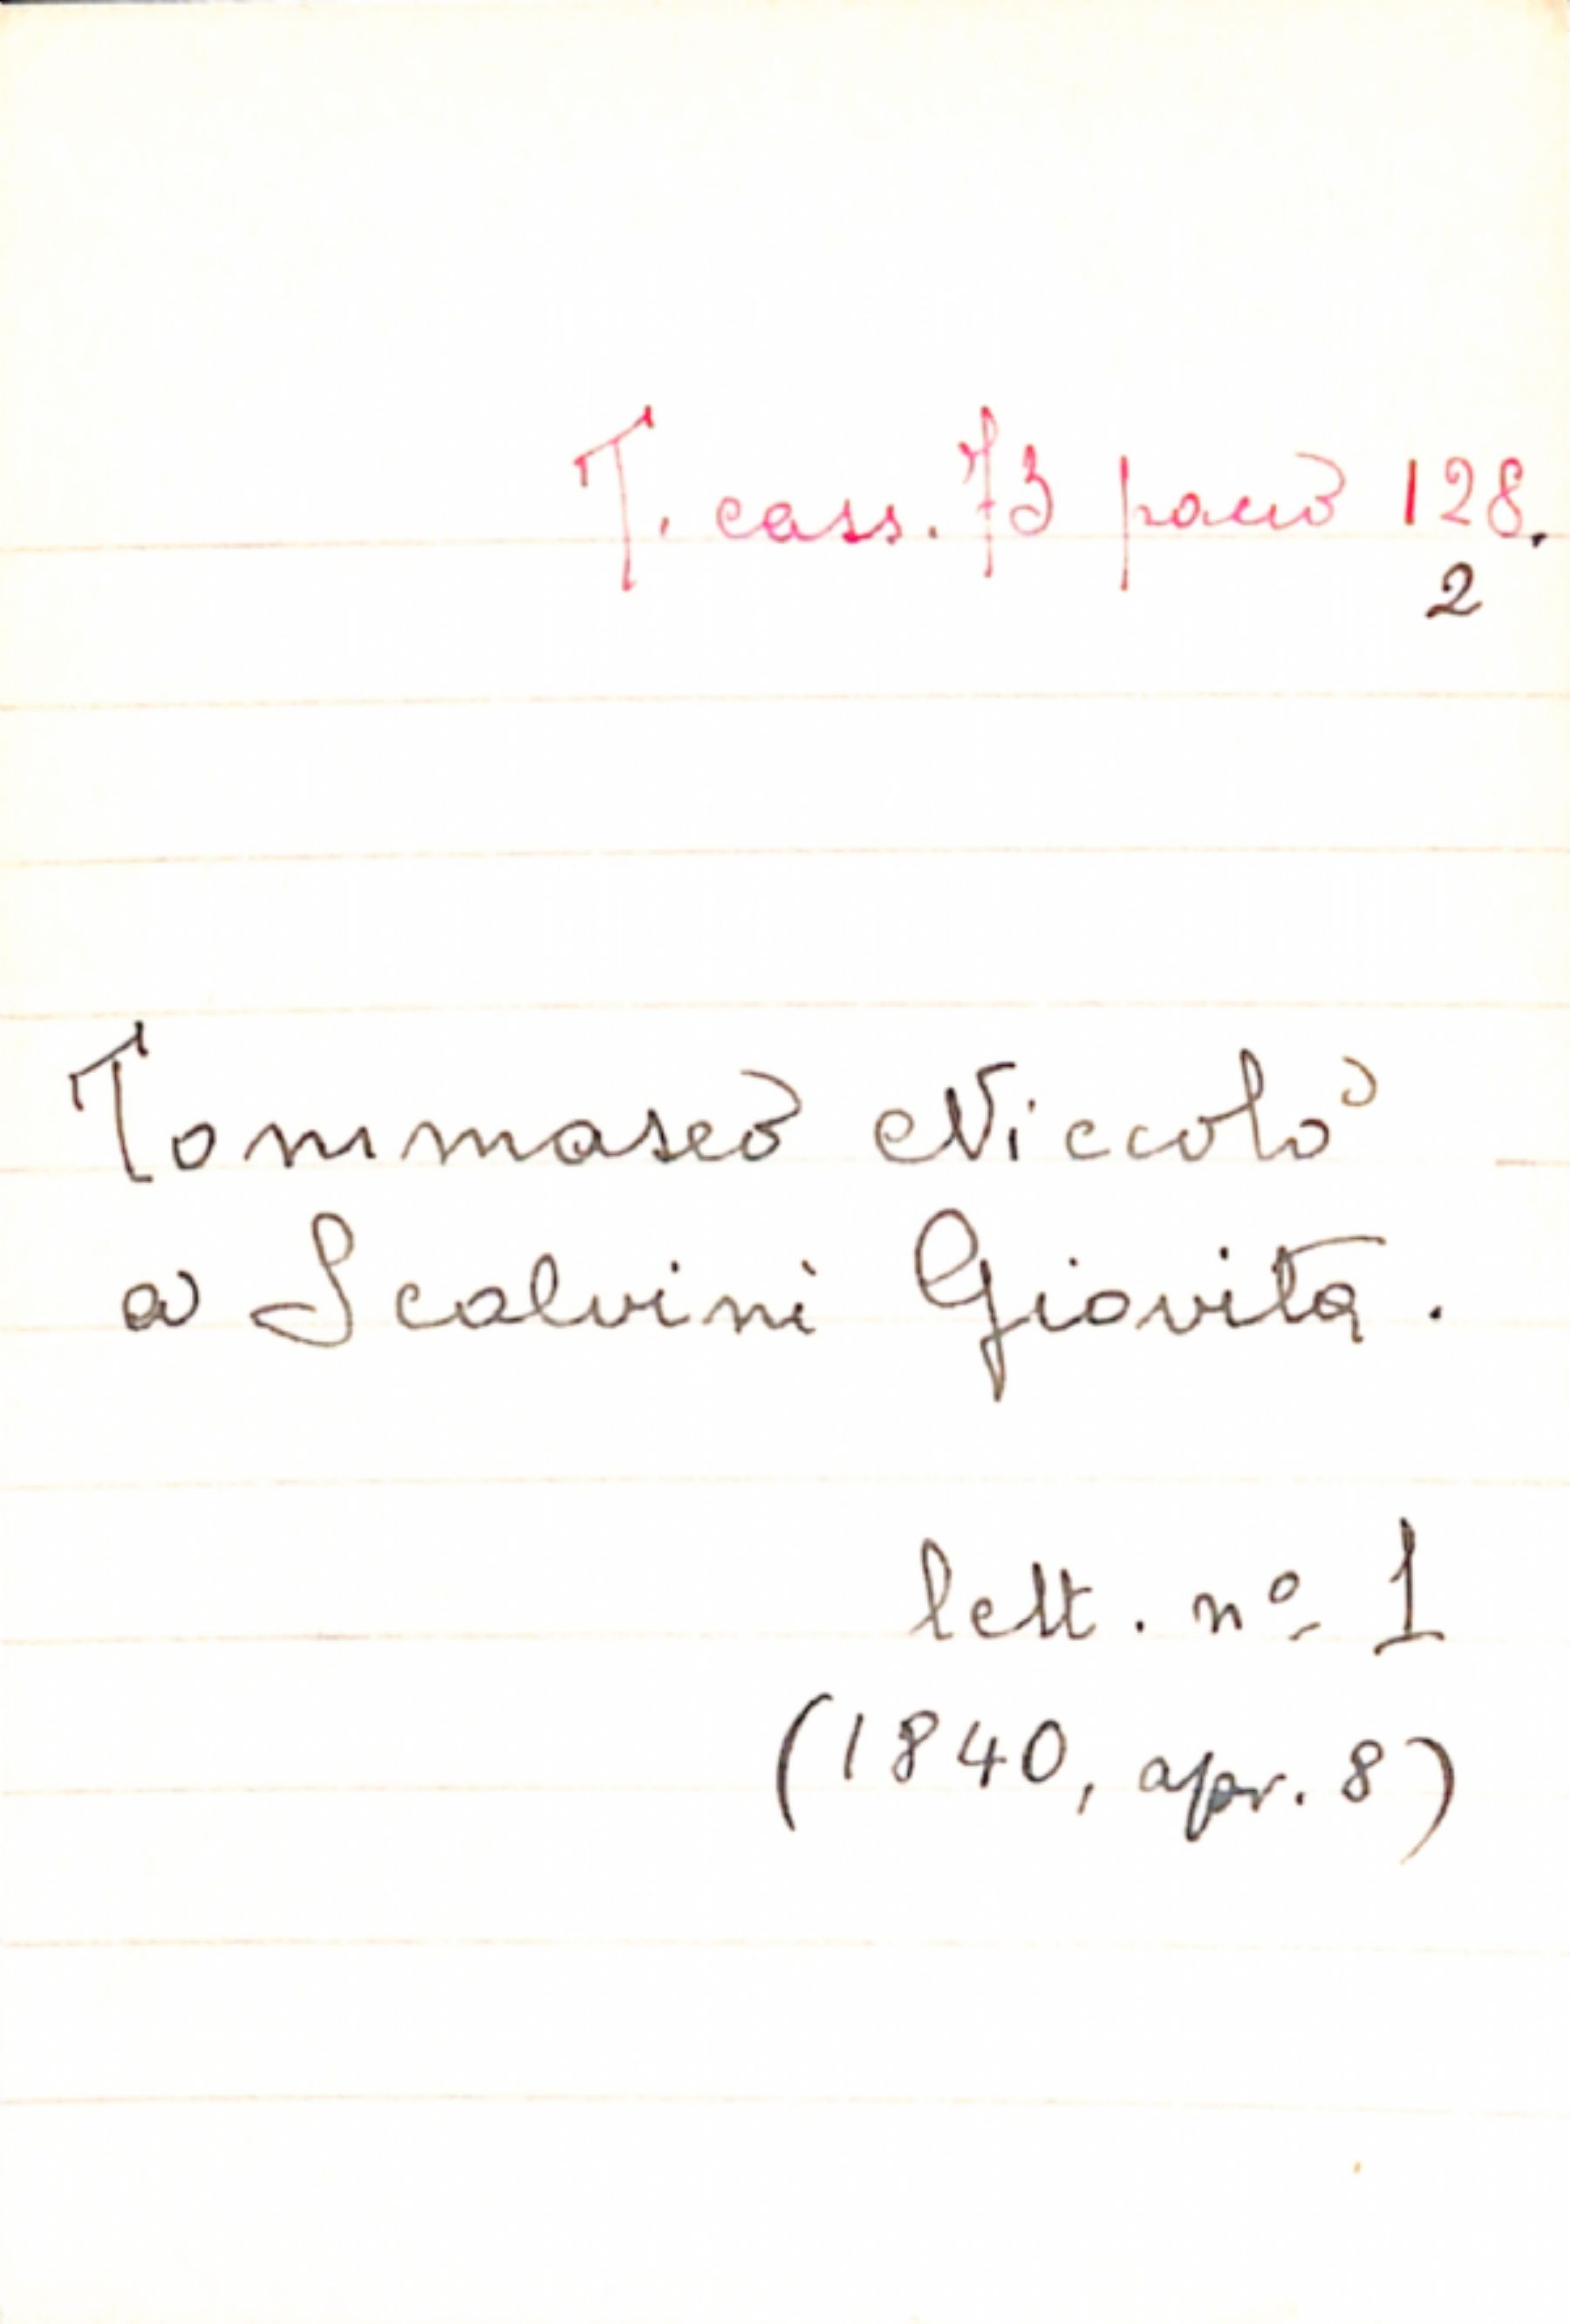 T. cass. 73 pacco 128.
2
Tommaseo Niccolò
a Scalvini Giovita.
lett. nº 1
(1840, apr. 8)